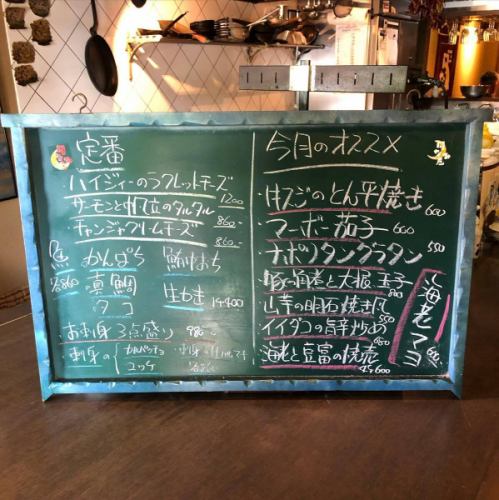 定番
・ハイジィーのラクレットチーズ 1200
サーモンとのタルタル 860
チャンジャクリームチーズ 860-
魚 かんぱち
各860 真鯛 生かき 1ケ400
タコ
お刺身3点盛り 980-
刺身の カルパッチョ
ユッケ 各860-
今月のオススメ
・牛スジのとん平焼き 600
・マーボー茄子 600
・ナポリタングラタン 550
豚角煮と大根玉子 800
山芋の明石焼き風 550
イイダコの旨辛炒め 680
海老と豆富の焼売 4ケ600
海老マヨ